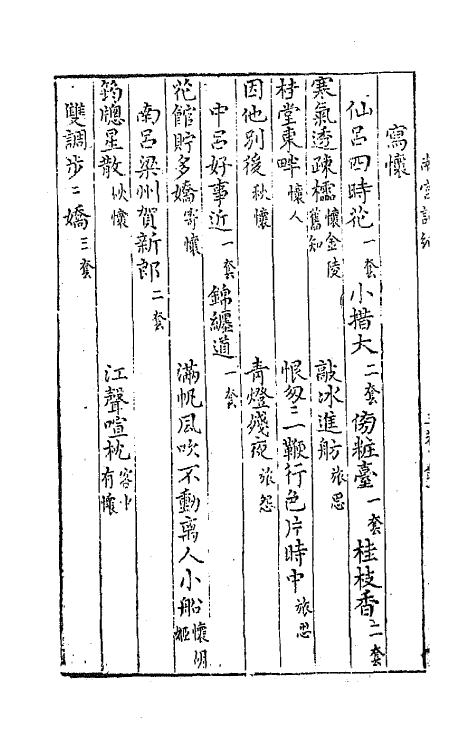 寫懷
仙呂四時花一套 小措大二套 傍粧臺一套 桂枝香二套
寒氣透疎櫺懷金陵舊知 敲冰進舫旅思
村堂東畔懷人 恨匆匆鞭行色片時中旅思
因他別後秋懷 青燈殘夜旅怨
中呂好事近一套 錦纏道一套
花館貯多嬌寄懷 滿帆風吹不動离人小船懷明姬
南呂梁州賀新郎二套
筠牕星散秋懷 江聲喧枕客中有懷
雙調步步嬌三套